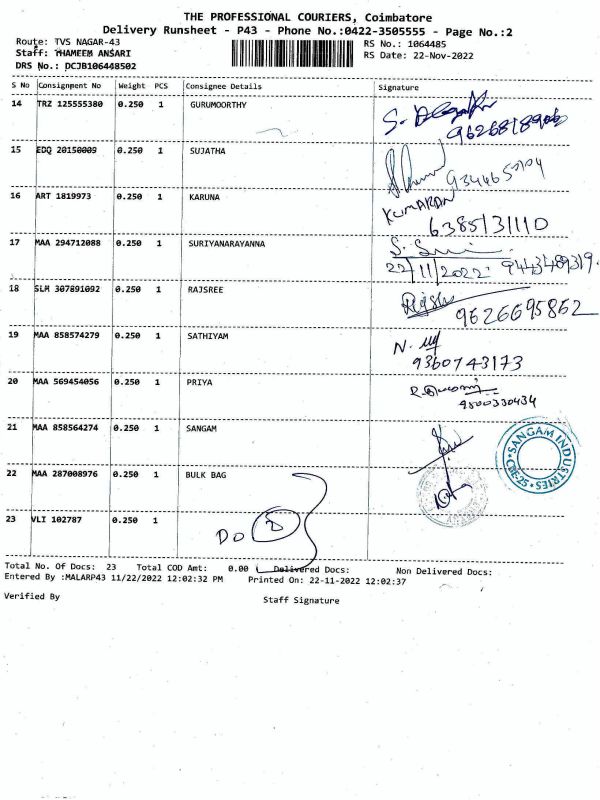 THE PROFESSIONAL COURIERS, Coimbatore
Delivery Runsheet - P43 - Phone No.:0422-3505555 - Page No.:2
Route: TVS NAGAR-43 RS No.: 1064485
Staff: THAMEEM ANSARI RS Date: 22-Nov-2022
DRS No.: DCJB106448502
S No Consignment No Weight PCS Consignee Details Signature
14 TRZ 125555380 0.250 1 GURUMOORTHY
15 EDQ 20150009 0.250 1 SUJATHA
16 ART 1819973 0.250 1 KARUNA KUMARAN
6385131110
17 MAA 294712088 0.250 1 SURIYANARAYANNA
22/11/2022
18 SLM 307891092 0.250 1 RAJSREE
9626695862
19 MAA 858574279 0.250 1 SATHIYAM
9360743173
20 MAA 569454056 0.250 1 PRIYA
9500330434
21 MAA 858564274 0.250 1 SANGAM
SANGAM INDUSTRIES * CBE-25 *
22 MAA 287008976 0.250 1 BULK BAG
23 VLI 102787 0.250 1
DO D
Total No. Of Docs: 23 Total COD Amt: 0.00 Delivered Docs: Non Delivered Docs:
Entered By :MALARP43 11/22/2022 12:02:32 PM Printed On: 22-11-2022 12:02:37
Verified By Staff Signature